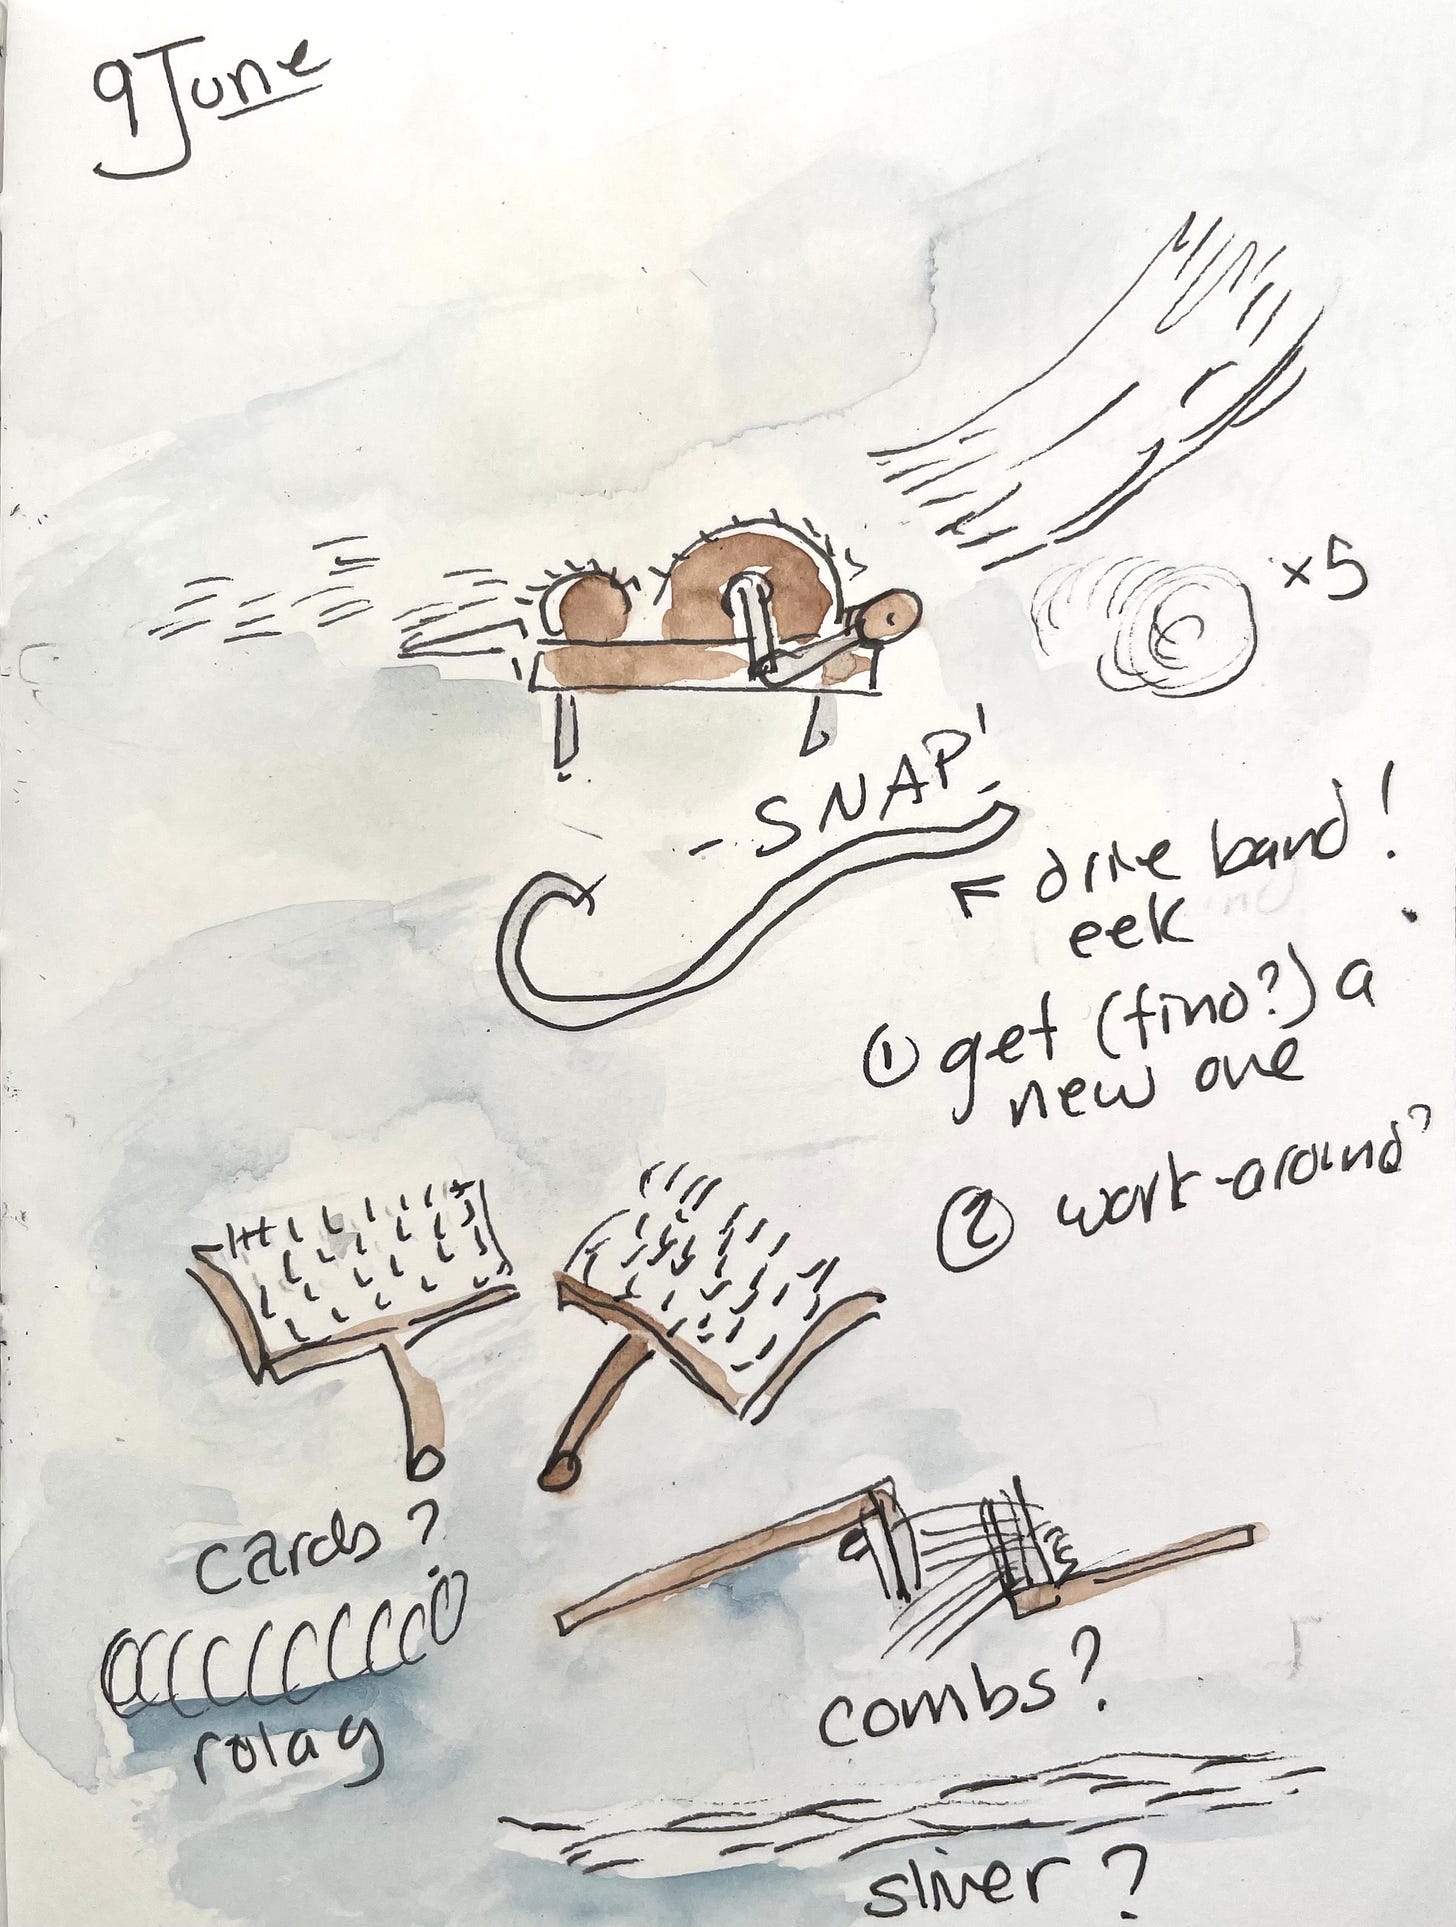 9 June
x5
- SNAP! -
drive band!
eek
① get (find?) a
new one
② work-around?
cards?
rolag
combs?
sliver?